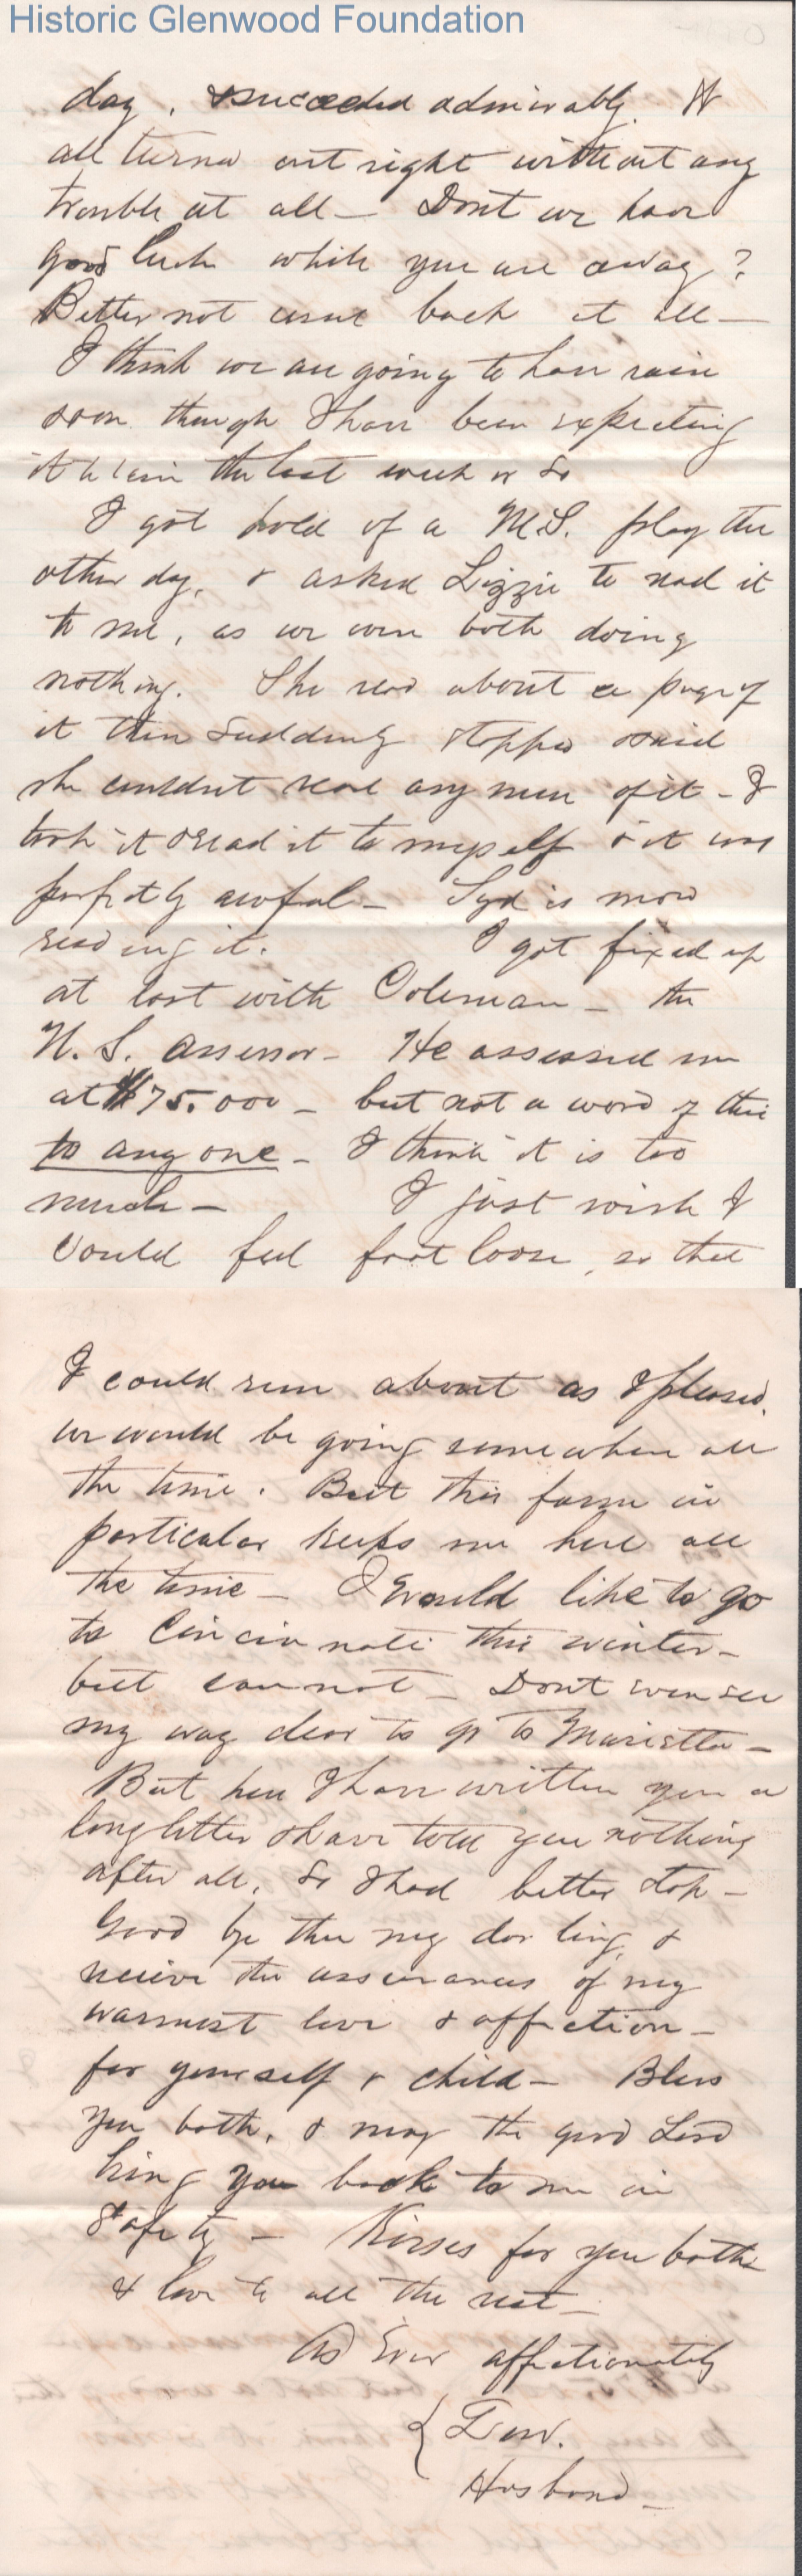 Historic Glenwood Foundation
day, & succeeded admirably. It
all turned out right without any
trouble at all – Dont we have
good luck while you are away?
Better not come back at all –
I think we are going to have rain
soon though I have been expecting
it the last week or so
I got hold of a M.S. play the
other day, & asked Lizzie to read it
to me, as we were both doing
nothing. She read about a page of
it then suddenly stopped & said
she couldnt read any more of it – I
took it & read it to myself & it was
perfectly awful – Syd is now
reading it. I got fixed up
at last with Coleman – the
U.S. Assessor – He assessed me
at $75.000 – but not a word of this
to any one – I think it is too
much – I just wish I
could feel foot loose, so that
I could run about as I pleased.
we would be going somewhere all
the time. But this farm in
particular keeps me here all
the time – I would like to go
to Cincinnati this winter –
but cannot – Dont even see
my way clear to go to Marietta –
But here I have written you a
long letter & have told you nothing
after all, So I had better stop –
Good bye then my darling, &
receive the assurances of my
warmest love & affection –
for yourself & child – Bless
you both, & may the good Lord
bring you back to me in
safety – Kisses for you both
& love to all the rest –
As Ever affectionately
Husband –